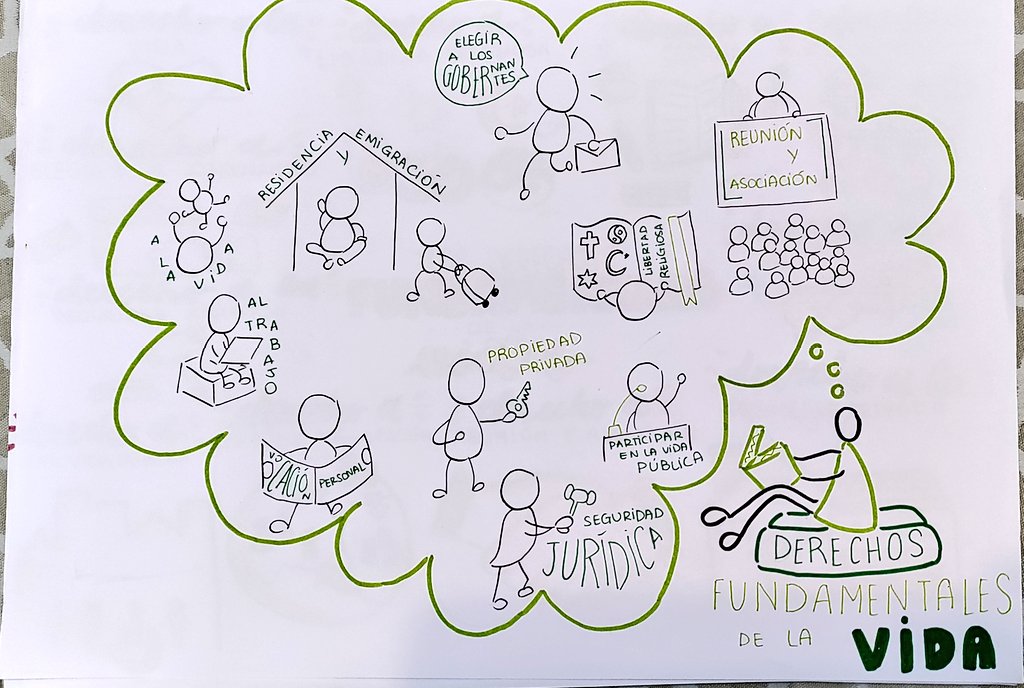 ELEGIR
A LOS
GOBERNAN
TES
RESIDENCIA
Y
EMIGRACIÓN
REUNIÓN
Y
ASOCIACIÓN
A LA VIDA
LIBERTAD
RELIGIOSA
AL
TRABAJO
PROPIEDAD
PRIVADA
VOCACIÓN
PERSONAL
PARTICIPAR
EN LA VIDA
PÚBLICA
SEGURIDAD
JURÍDICA
DERECHOS
FUNDAMENTALES
DE LA
VIDA